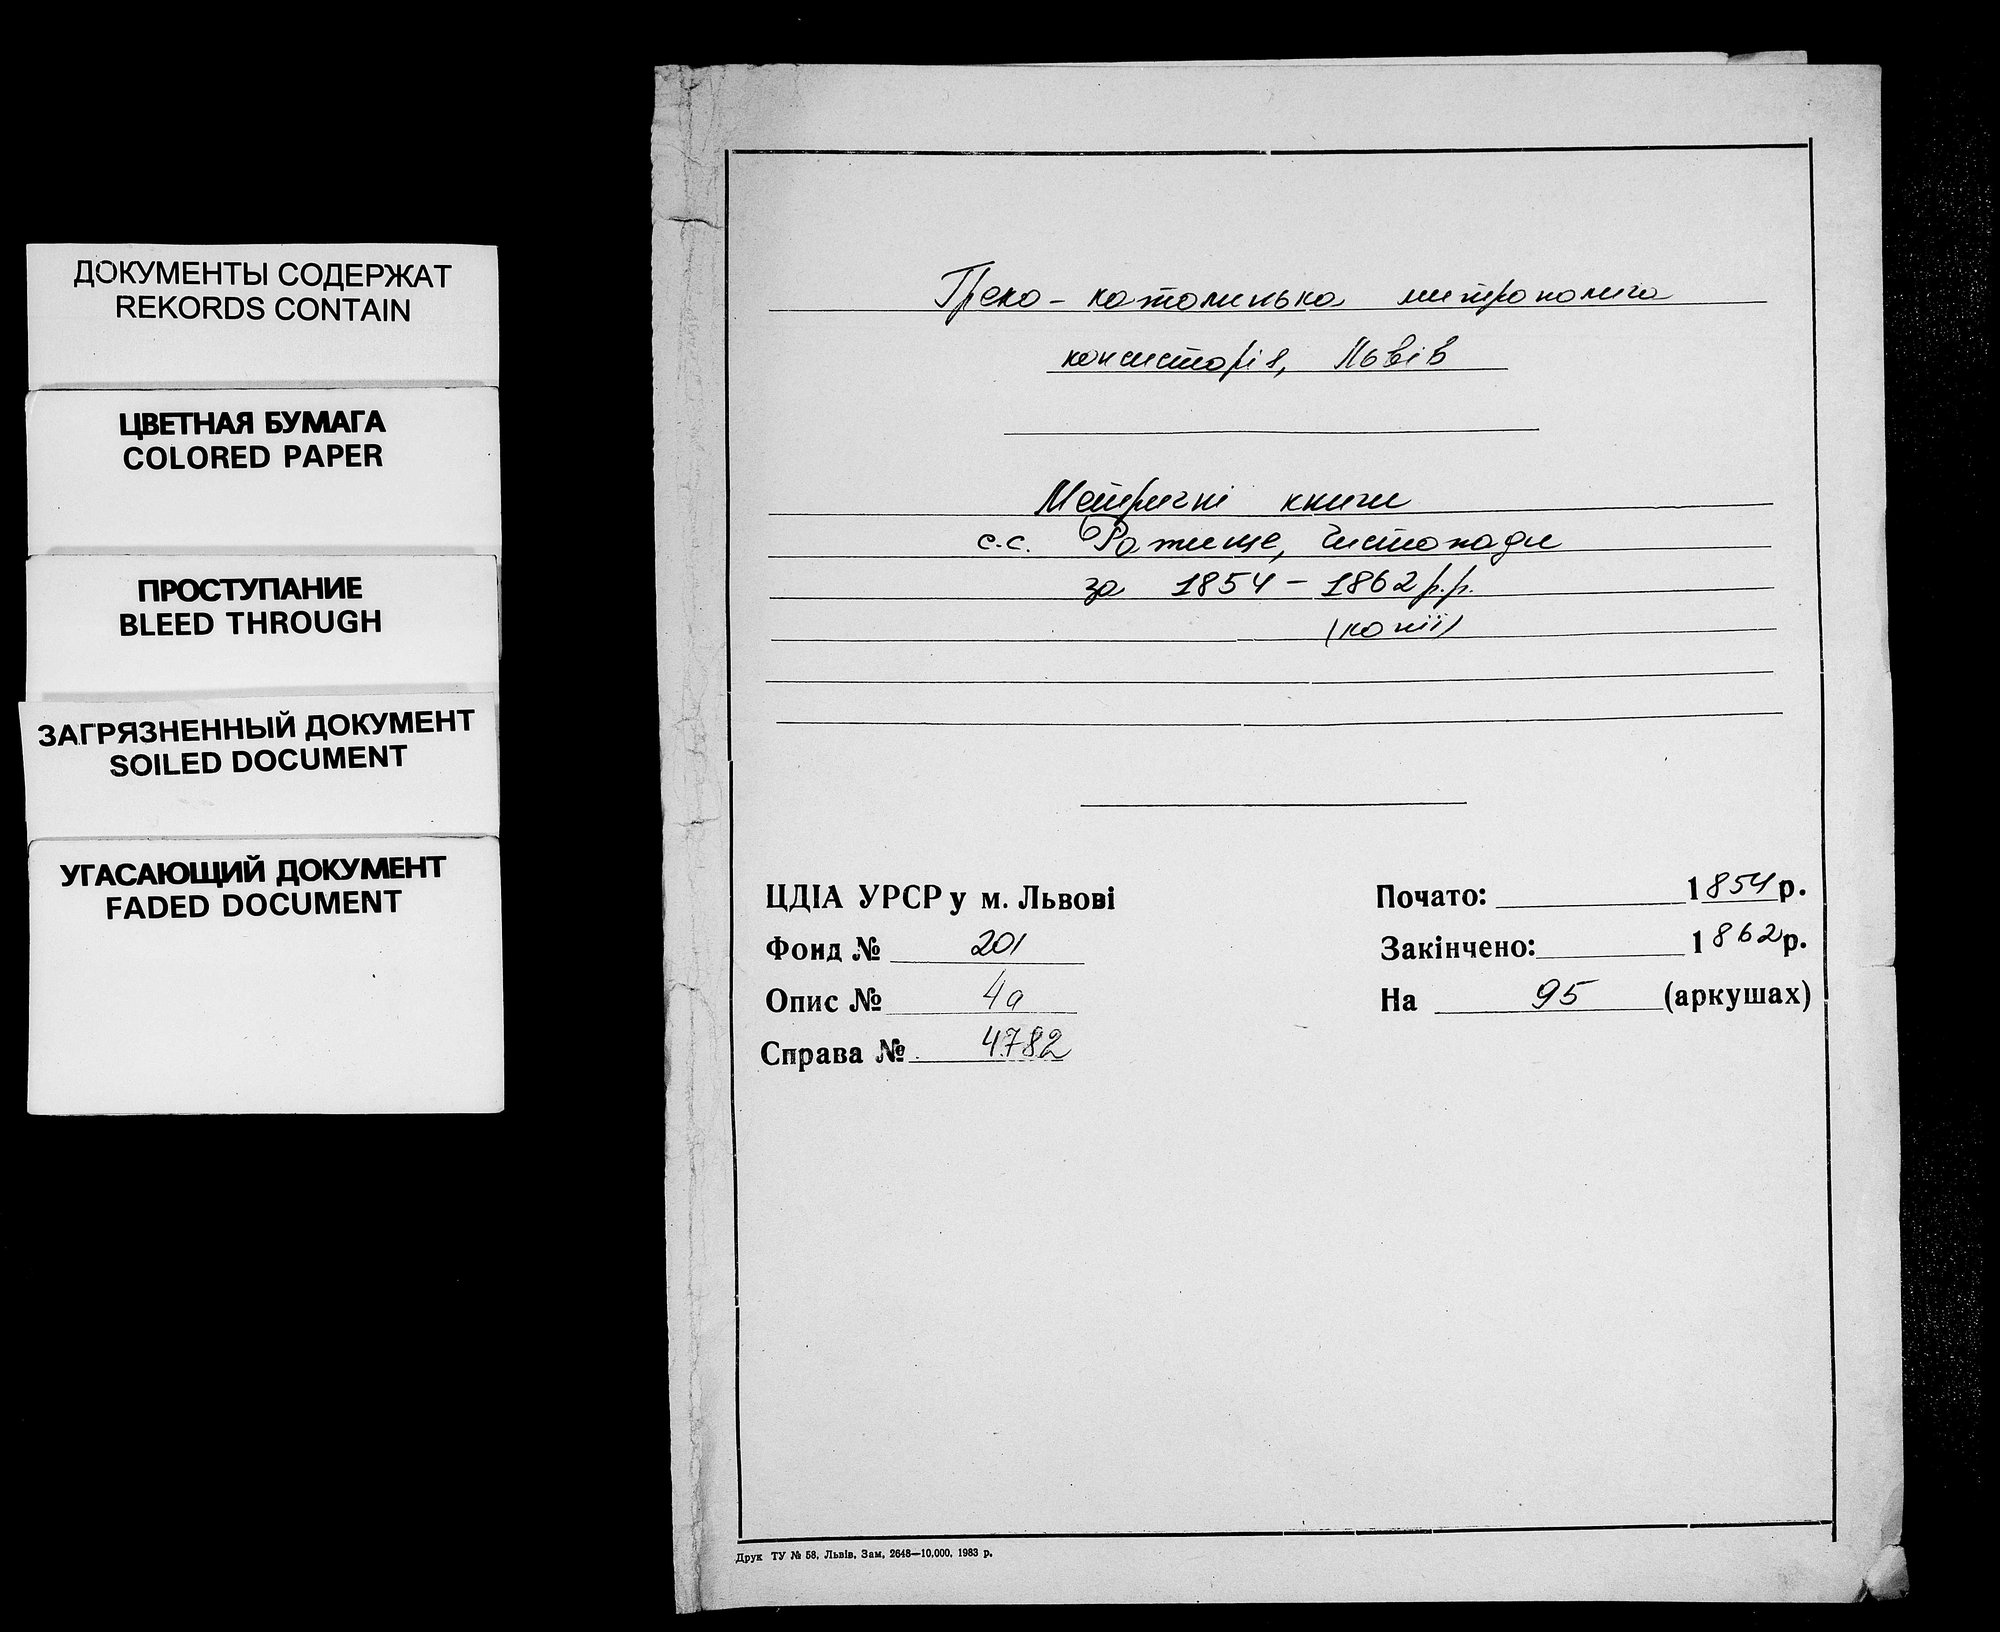 ДОКУМЕНТЫ СОДЕРЖАТ
REKORDS CONTAIN
ЦВЕТНАЯ БУМАГА
COLORED PAPER
ПРОСТУПАНИЕ
BLEED THROUGH
ЗАГРЯЗНЕННЫЙ ДОКУМЕНТ
SOILED DOCUMENT
УГАСАЮЩИЙ ДОКУМЕНТ
FADED DOCUMENT
Греко-католицька митрополича
консисторія, Львів
Метричні книги
с.с. Ражище, Чистопади
за 1854 - 1862 р.р.
(копії)
ЦДІА УРСР у м. Львові
Фонд № 201
Опис № 4а
Справа № 4782
Почато: 1854 р.
Закінчено: 1862 р.
На 95 (аркушах)
Друк ТУ № 58, Львів, Зам, 2648—10,000. 1983 р.